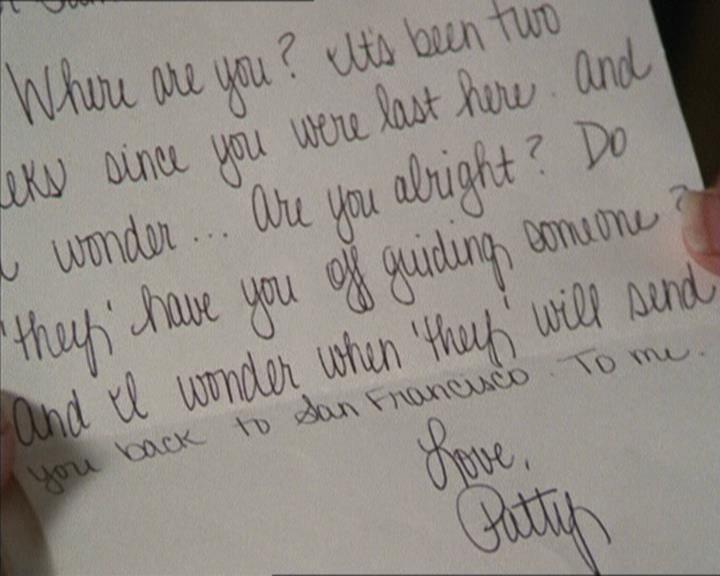 Where are you? It's been two
eks since you were last here. And
wonder... are you alright? Do
'they' have you off guiding someone?
And I wonder when 'they' will send
you back to San Francisco. To me.
Love,
Patty